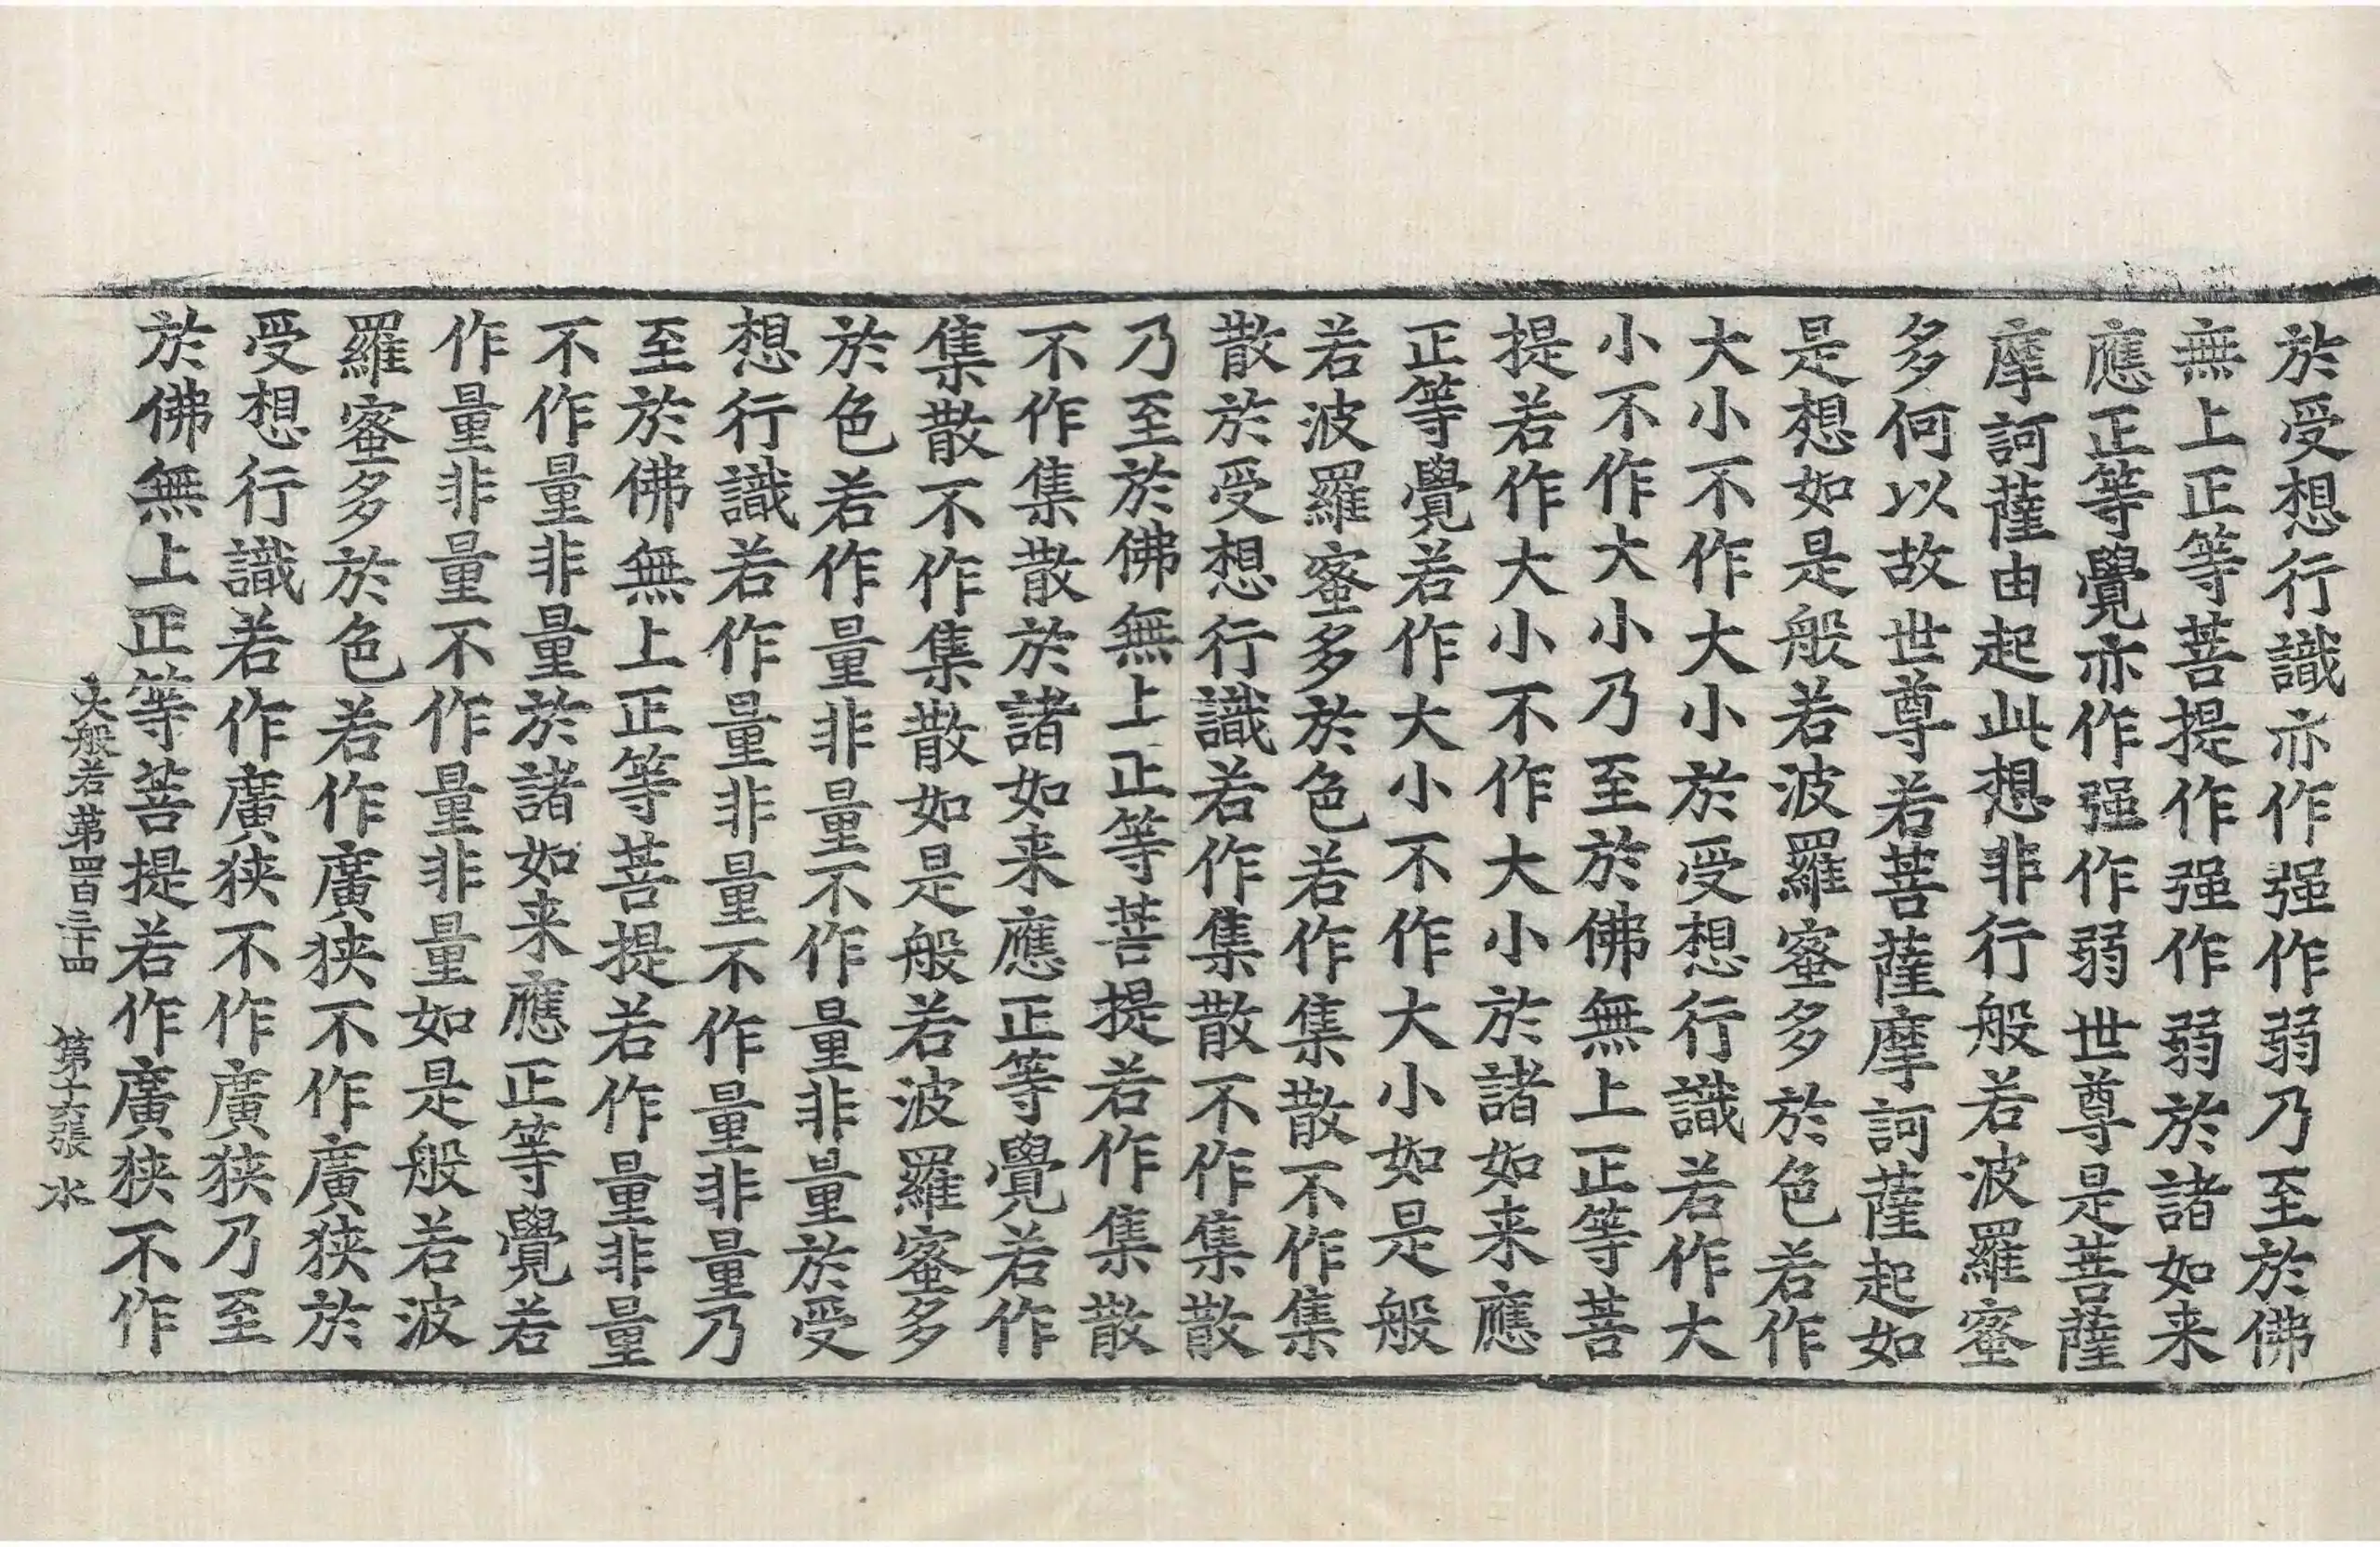 於受想行識亦作强作弱乃至於佛
無上正等菩提作强作弱於諸如来
應正等覺亦作强作弱世尊是菩薩
摩訶薩由起此想非行般若波羅蜜
多何以故世尊若菩薩摩訶薩起如
是想如是般若波羅蜜多於色若作
大小不作大小於受想行識若作大
小不作大小乃至於佛無上正等菩
提若作大小不作大小於諸如来應
正等覺若作大小不作大小如是般
若波羅蜜多於色若作集散不作集
散於受想行識若作集散不作集散
乃至於佛無上正等菩提若作集散
不作集散於諸如来應正等覺若作
集散不作集散如是般若波羅蜜多
於色若作量非量不作量非量於受
想行識若作量非量不作量非量乃
至於佛無上正等菩提若作量非量
不作量非量於諸如来應正等覺若
作量非量不作量非量如是般若波
羅蜜多於色若作廣狹不作廣狹於
受想行識若作廣狹不作廣狹乃至
於佛無上正等菩提若作廣狹不作
大般若第四百三十四 第十六張 水